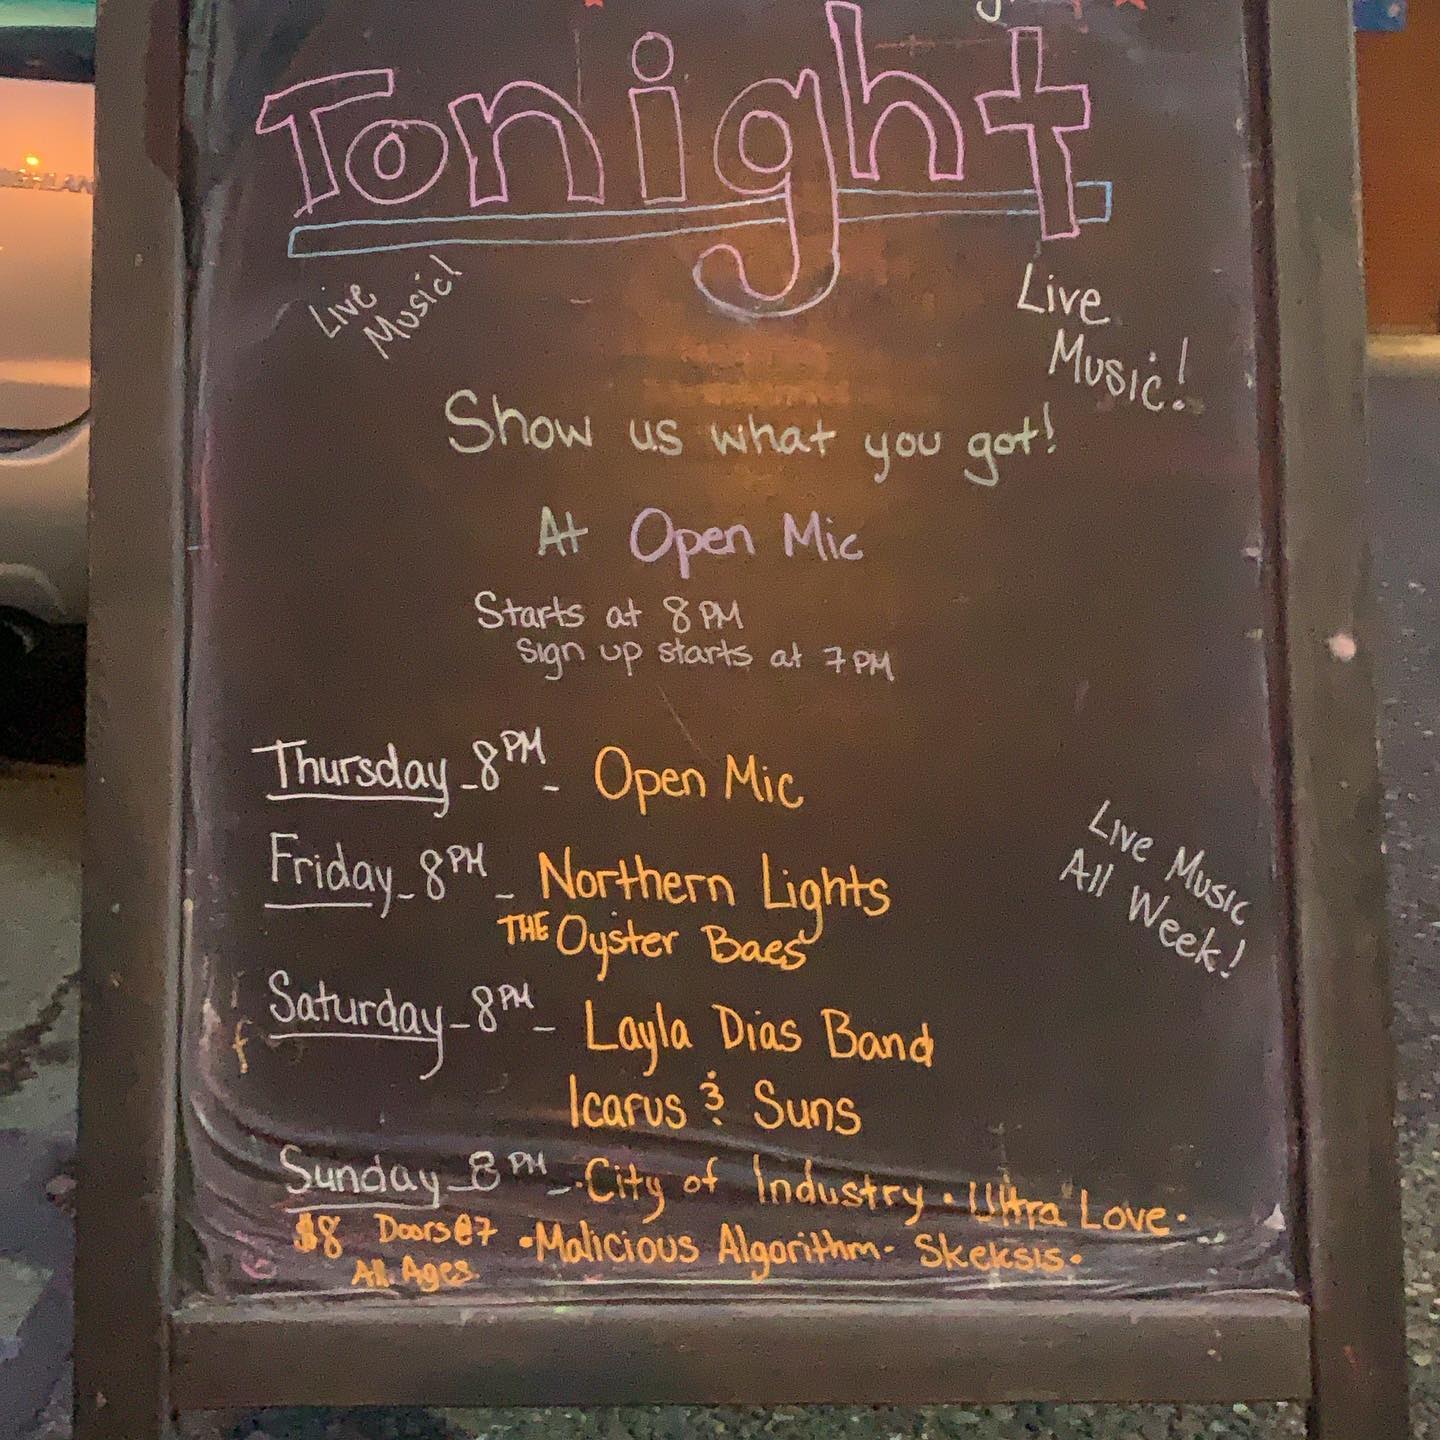 Tonight
Live
Music!
Live
Music!
Show us what you got!
At Open Mic
Starts at 8 PM
Sign up starts at 7 PM
Thursday - 8 PM - Open Mic
Friday - 8 PM - Northern Lights
THE Oyster Baes
Live Music
All Week!
Saturday - 8 PM - Layla Dias Band
Icarus & Suns
Sunday - 8 PM - • City of Industry • Ultra Love •
$8 Doors @ 7 • Malicious Algorithm • Skeksis •
All Ages